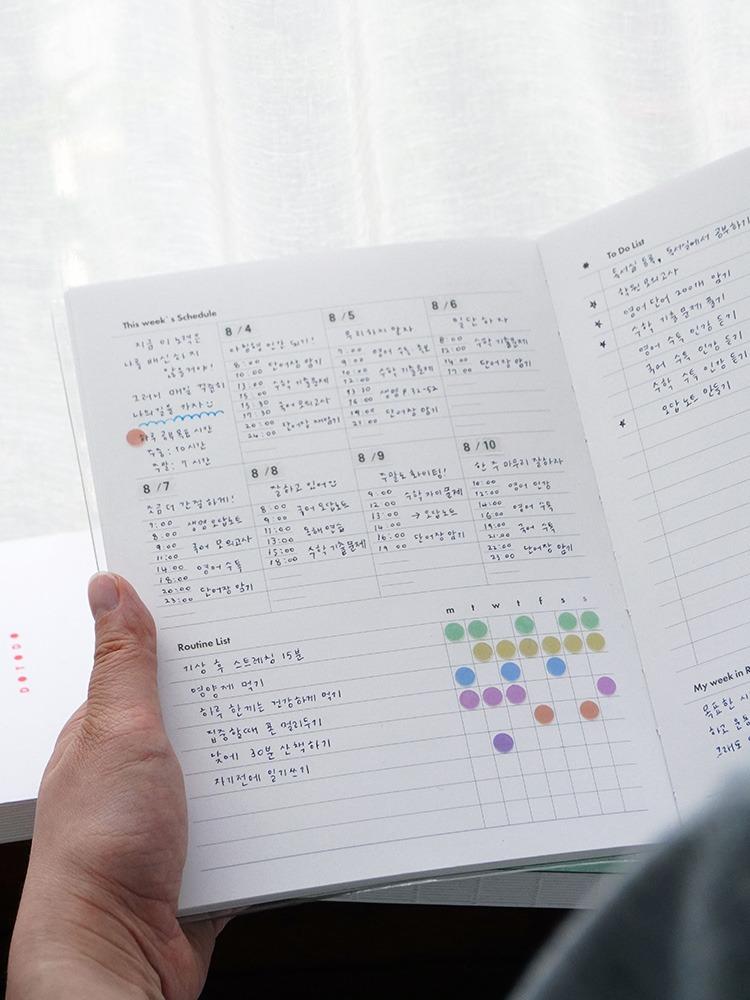 This week's Schedule
지금 이 노력은
나를 배신하지
않을거야!
그러니 매일 꾸준히
하루 공부 목표 시간
주중 : 10 시간
주말 : 7 시간
8 / 4
8:00
10:00 단어장 암기
13:00 수학 기출문제
15:00
15:30 국어 모의고사
17:30
20:00 단어장 재암기
24:00
8 / 5
무리하지 말자
7:00 영어 수특
9:00
10:00 수학 기출문제
12:00
13:30 생명 P.32-52
16:00
19:00 단어장 암기
21:00
8 / 6
일단 하자
8:00 수학 기출문제
12:00
14:00 단어장 암기
17:00
8 / 7
조금 더 간절하게!
7:00 생명 오답노트
8:00
9:00 국어 모의고사
11:00
14:00 영어 수특
18:00
20:00 단어장 암기
23:00
8 / 8
잘하고 있어
8:00 국어 오답노트
9:00
11:00 독해연습
13:00
15:00 수학 기출문제
18:00
8 / 9
주말도 화이팅!
9:00 수학 자이문제
12:00
13:00 → 오답노트
14:00
16:00 단어장 암기
19:00
8 / 10
한 주 마무리 잘하자
10:00 영어 인강
12:00
14:00 영어 수특
16:00
19:00 국어 수특
21:00
22:00 단어장 암기
23:00
Routine List
m t w t f s s
기상 후 스트레칭 15분
영양제 먹기
하루 한끼는 건강하게 먹기
집중할때 폰 멀리두기
낮에 30분 산책하기
자기전에 일기쓰기
To Do List
독서실 등록, 독서실에서 공부하기
학원 모의고사
영어 단어 200개 암기
수학 기출문제 풀기
영어 수특 인강 듣기
국어 수특 인강 듣기
수학 수특 인강 듣기
오답노트 만들기
My week in R
하고 운동
그래도